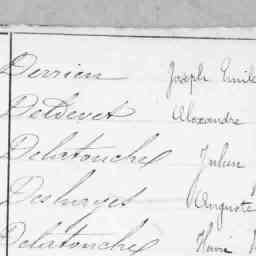 Derrien Joseph Emile
Deldevet Alexandre
Delatouche Julien
Deshayes Auguste
Delatouche Henri